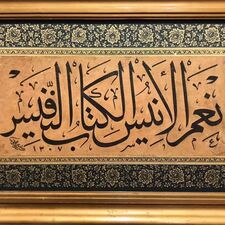 نعم الأنيس الكتاب النفيس
١٣٠٧